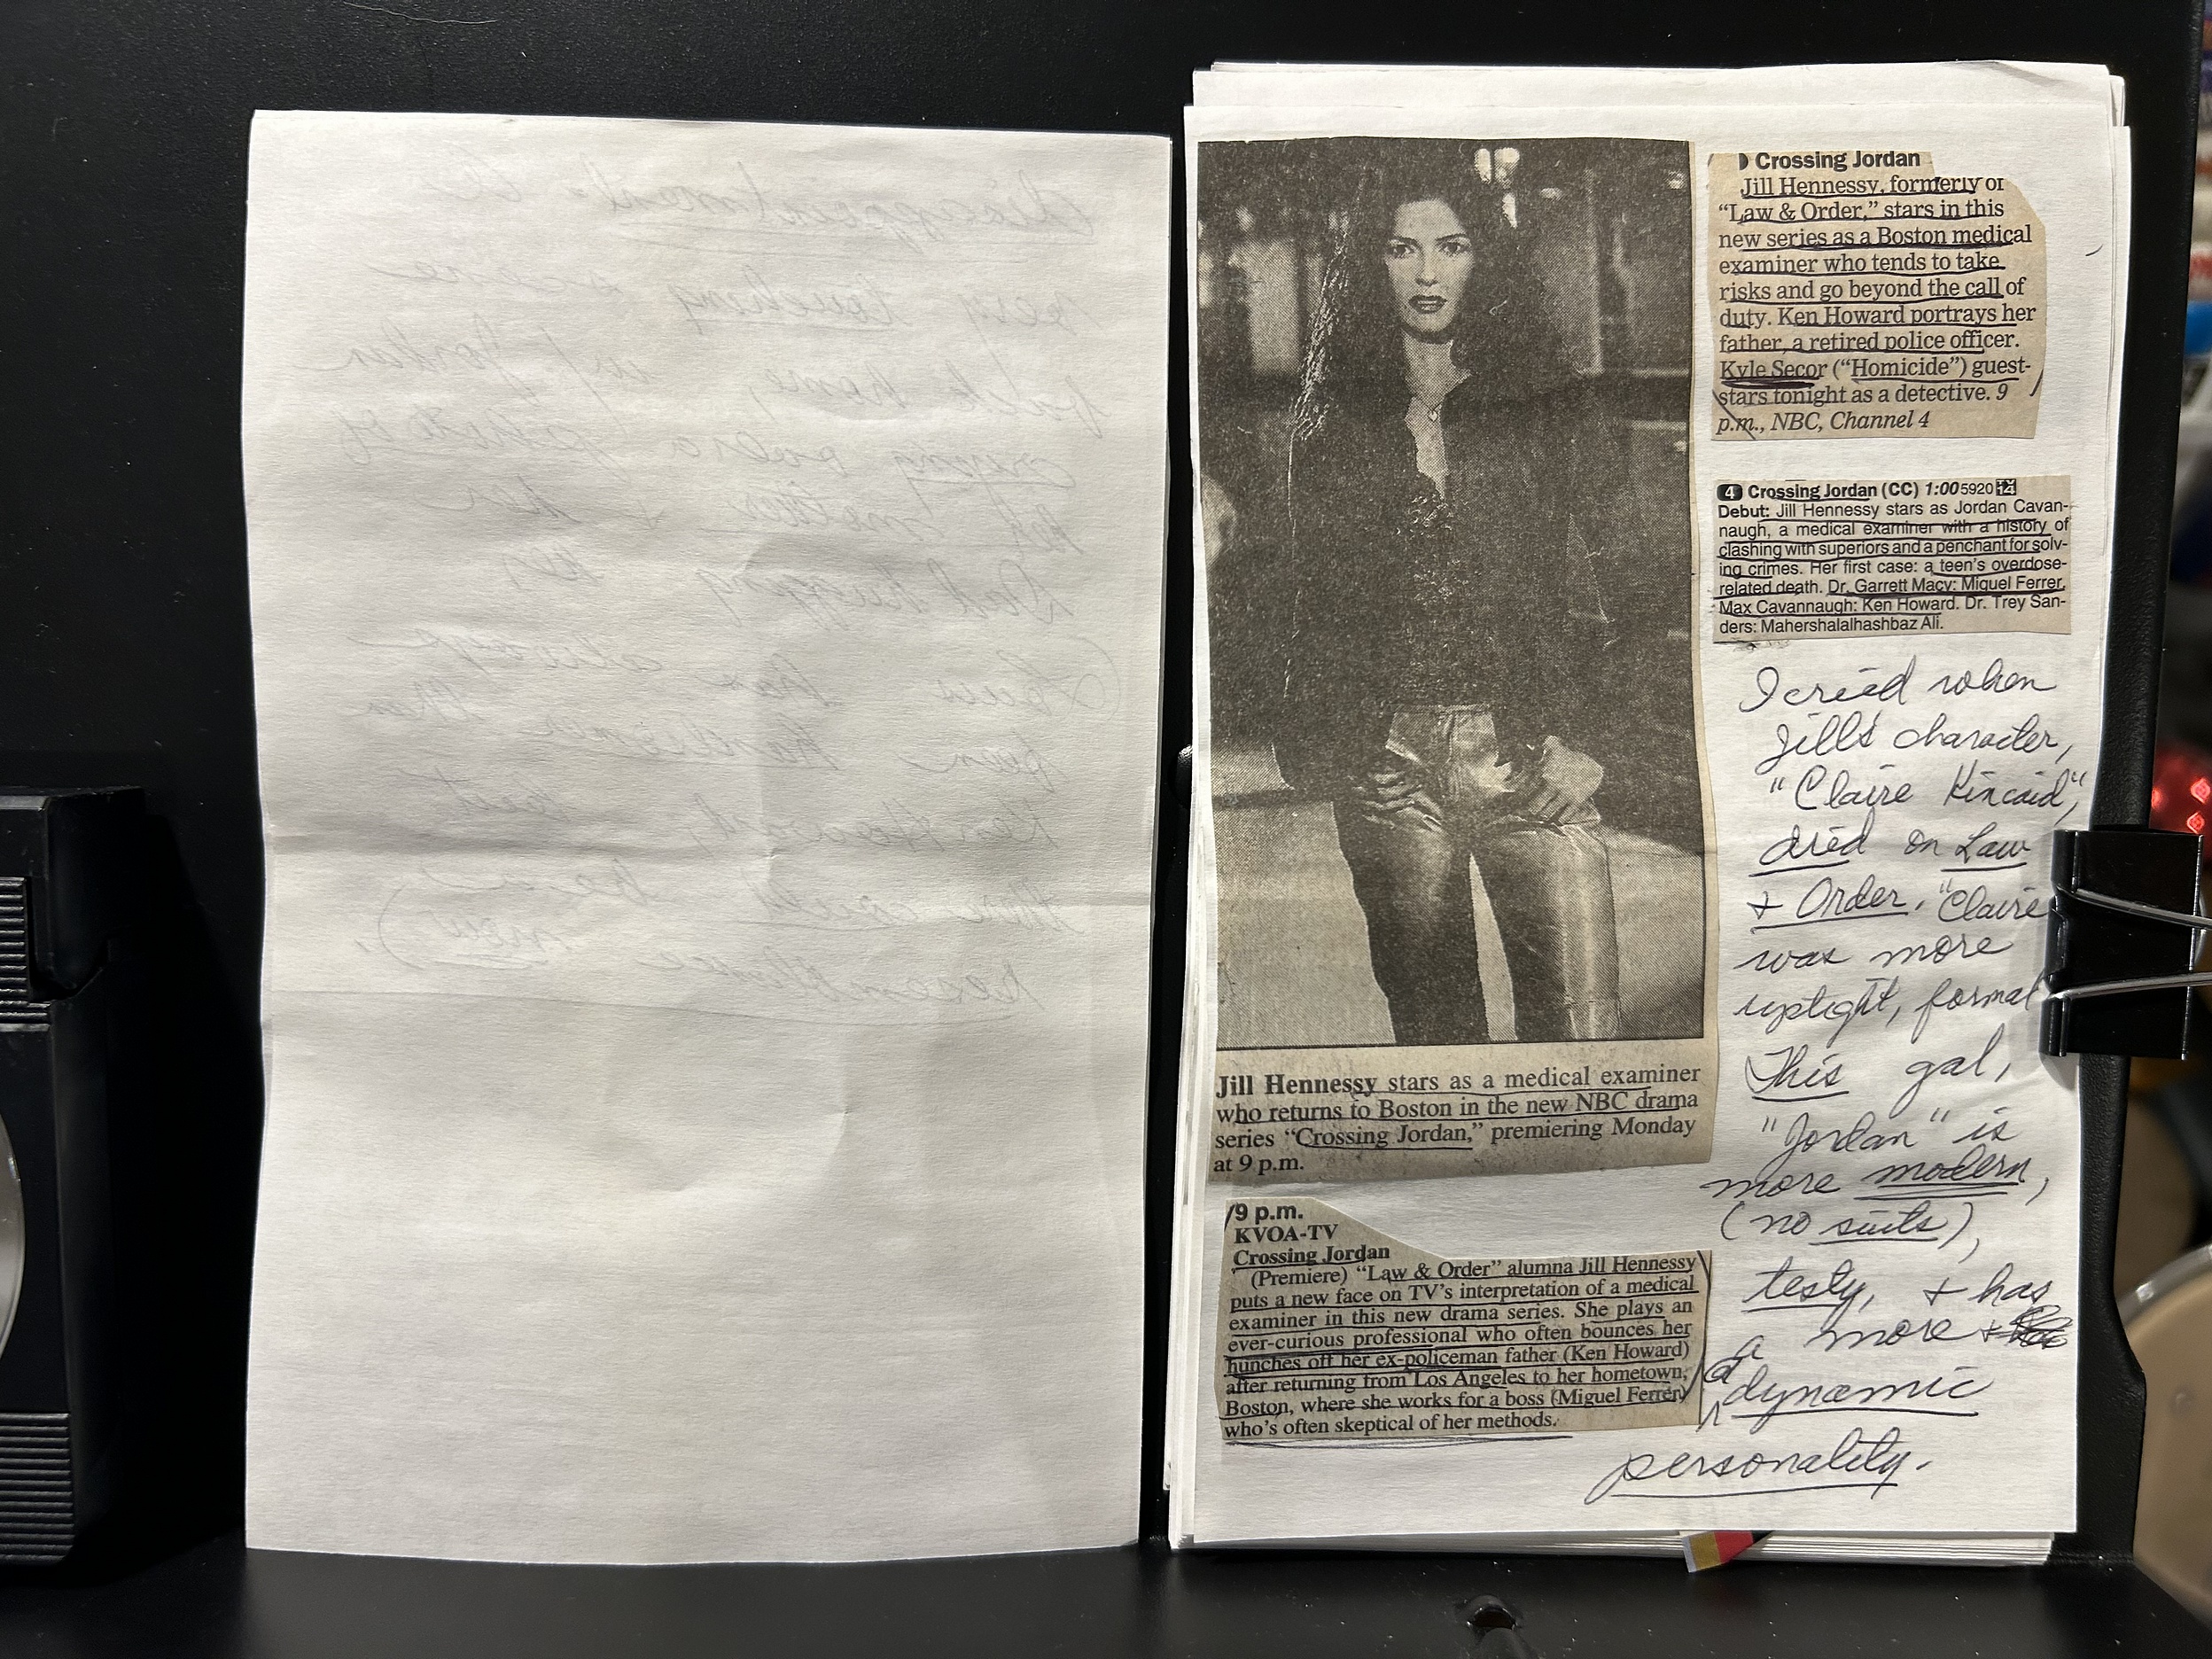 Disappointment
very touching scene
back home, w/ Jordan
crying over a photo of
her
Dad hugging her,
(Louis has always
been handsomer than
Ken Howard, but
there could be a
resemblance now).
Jill Hennessy stars as a medical examiner
who returns to Boston in the new NBC drama
series “Crossing Jordan,” premiering Monday
at 9 p.m.
9 p.m.
KVOA-TV
Crossing Jordan
(Premiere) “Law & Order” alumna Jill Hennessy
puts a new face on TV’s interpretation of a medical
examiner in this new drama series. She plays an
ever-curious professional who often bounces her
hunches off her ex-policeman father (Ken Howard)
after returning from Los Angeles to her hometown,
Boston, where she works for a boss (Miguel Ferrer)
who’s often skeptical of her methods.
Crossing Jordan
Jill Hennessy, formerly of
“Law & Order,” stars in this
new series as a Boston medical
examiner who tends to take
risks and go beyond the call of
duty. Ken Howard portrays her
father, a retired police officer.
Kyle Secor (“Homicide”) guest-
stars tonight as a detective. 9
p.m., NBC, Channel 4
4 Crossing Jordan (CC) 1:00 5920 14
Debut: Jill Hennessy stars as Jordan Cavan-
naugh, a medical examiner with a history of
clashing with superiors and a penchant for solv-
ing crimes. Her first case: a teen’s overdose-
related death. Dr. Garrett Macy: Miguel Ferrer.
Max Cavannaugh: Ken Howard. Dr. Trey San-
ders: Mahershalalhashbaz Ali.
I cried when
Jill's character,
"Claire Kincaid",
died on Law
+ Order. "Claire
was more
uptight, formal
This gal,
"Jordan" is
more modern,
(no suits),
testy, + has
a more +
dynamic
personality.